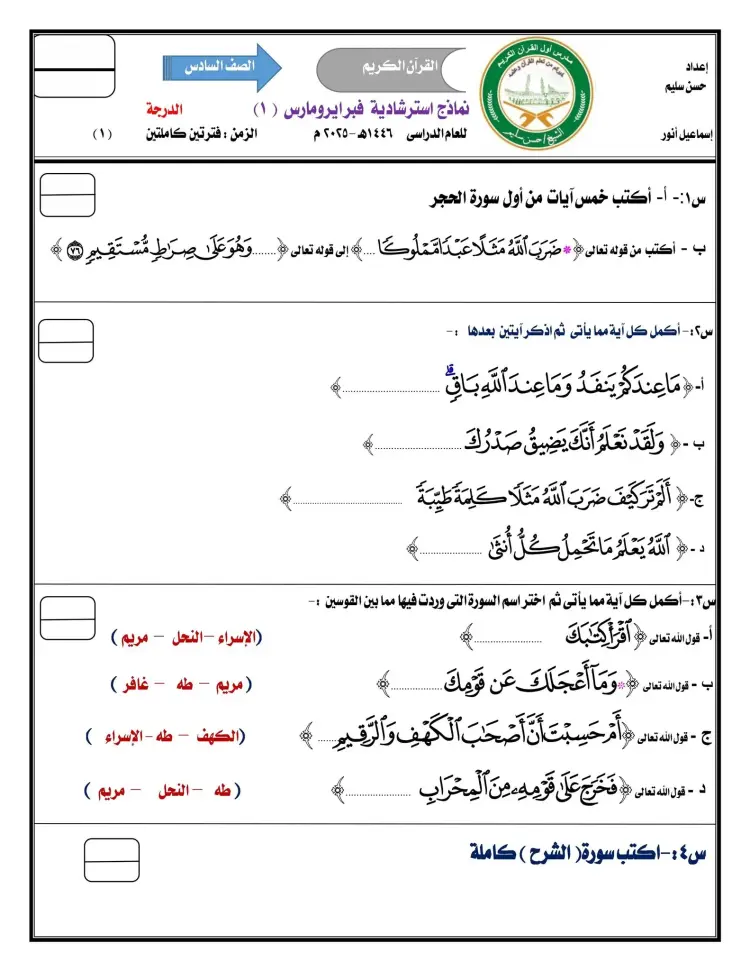 إعداد
حسن سليم
إسماعيل أنور
مدرس أول القرآن الكريم
خيركم من تعلم القرآن وعلمه
الشيخ/ حسن سليم
القرآن الكريم
الصف السادس
نماذج استرشادية فبراير ومارس (١) الدرجة
للعام الدراسى ١٤٤٦هـ -٢٠٢٥ م الزمن : فترتين كاملتين (١)
س١:- أ- أكتب خمس آيات من أول سورة الحجر
ب - أكتب من قوله تعالى ﴿* ضَرَبَ ٱللَّهُ مَثَلًا عَبْدًا مَّمْلُوكًا ....﴾ إلى قوله تعالى ﴿........وَهُوَ عَلَىٰ صِرَٰطٍ مُّسْتَقِيمٍ ٧٦﴾
س٢:- أكمل كل آية مما يأتى ثم اذكر آيتين بعدها :-
أ- ﴿مَا عِندَكُمْ يَنفَدُ وَمَا عِندَ ٱللَّهِ بَاقٍۗ ..............................﴾
ب - ﴿ وَلَقَدْ نَعْلَمُ أَنَّكَ يَضِيقُ صَدْرُكَ ..............................﴾
ج- ﴿ أَلَمْ تَرَ كَيْفَ ضَرَبَ ٱللَّهُ مَثَلًا كَلِمَةً طَيِّبَةً ..............................﴾
د - ﴿ ٱللَّهُ يَعْلَمُ مَا تَحْمِلُ كُلُّ أُنثَىٰ .....................﴾
س٣:-أكمل كل آية مما يأتى ثم اختر اسم السورة التى وردت فيها مما بين القوسين :-
أ- قول الله تعالى ﴿ ٱقْرَأْ كِتَٰبَكَ .......................﴾ (الإسراء -النحل - مريم )
ب - قول الله تعالى ﴿* وَمَآ أَعْجَلَكَ عَن قَوْمِكَ .....................﴾ (مريم - طه - غافر )
ج - قول الله تعالى ﴿أَمْ حَسِبْتَ أَنَّ أَصْحَٰبَ ٱلْكَهْفِ وَٱلرَّقِيمِ.......﴾ (الكهف - طه -الإسراء )
د - قول الله تعالى ﴿ فَخَرَجَ عَلَىٰ قَوْمِهِۦ مِنَ ٱلْمِحْرَابِ .....................﴾ ( طه - النحل - مريم )
س٤:-اكتب سورة( الشرح ) كاملة